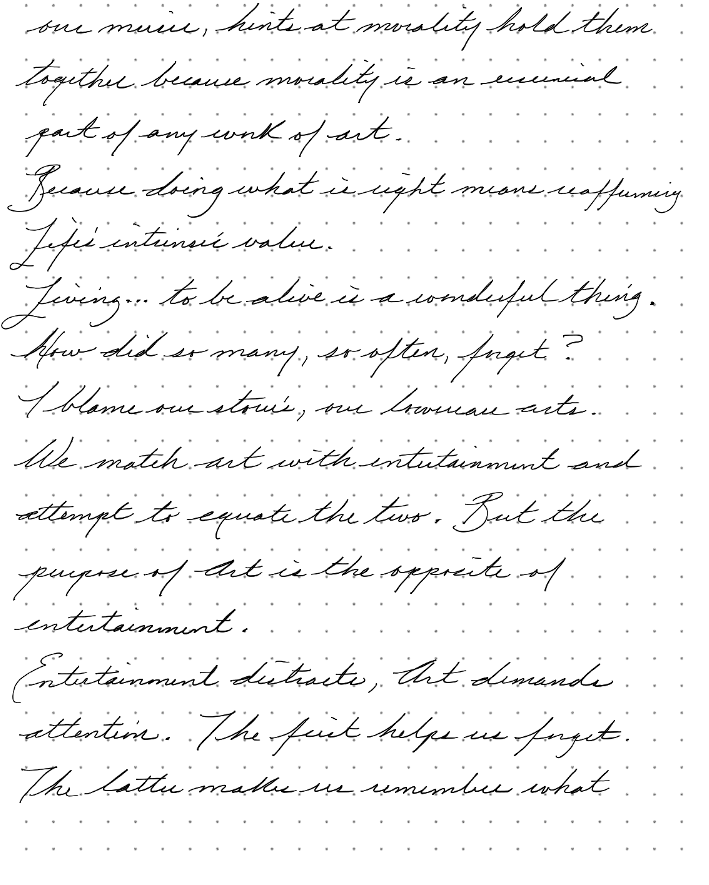 our music, hints at morality hold them
together because morality is an essential
part of any work of art.
Because doing what is right means reaffirming
Life's intrinsic value.
Living... to be alive is a wonderful thing.
How did so many, so often, forget?
I blame our stories, our lowbrow arts.
We match art with entertainment and
attempt to equate the two. But the
purpose of Art is the opposite of
entertainment.
Entertainment distracts, Art demands
attention. The first helps us forget.
The latter makes us remember what